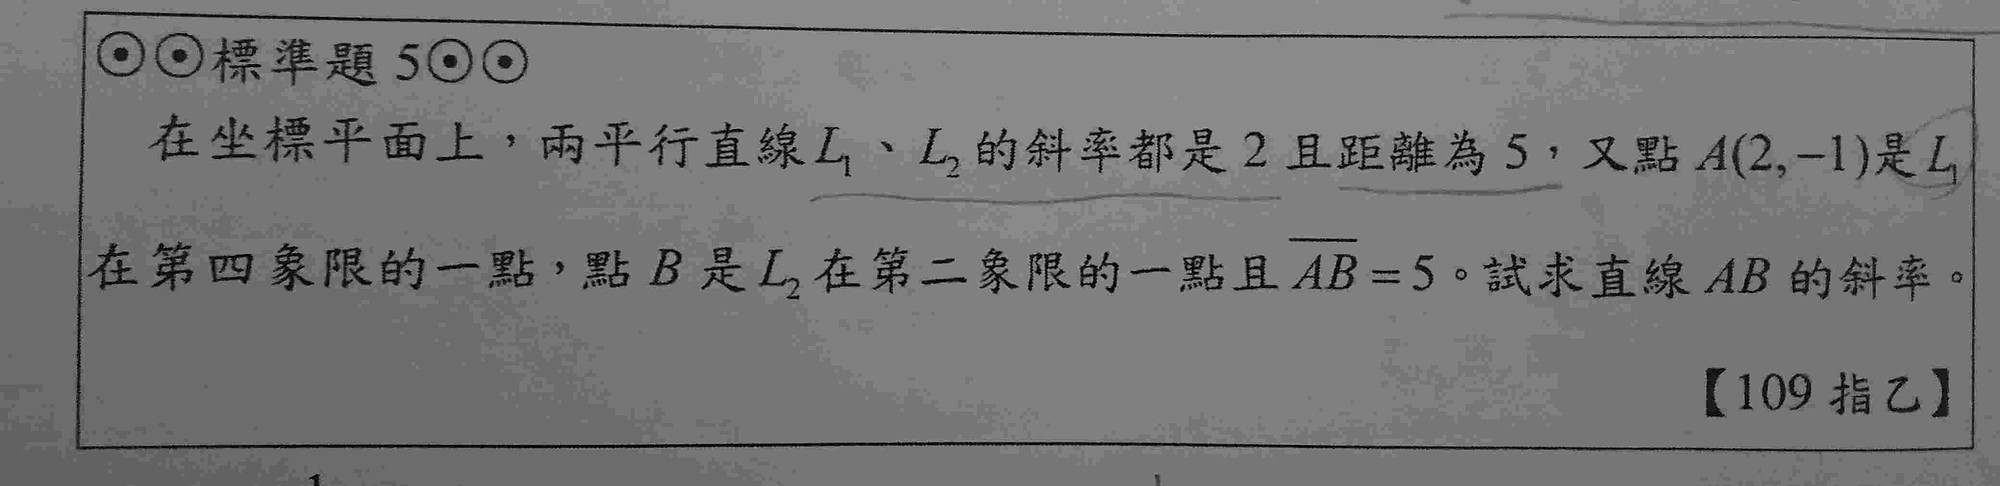 ⊙⊙標準題 5⊙⊙
在坐標平面上，兩平行直線 L₁、L₂ 的斜率都是 2 且距離為 5，又點 A(2,−1)是 L₁
在第四象限的一點，點 B 是 L₂ 在第二象限的一點且 A̅B̅ = 5。試求直線 AB 的斜率。
【109 指乙】